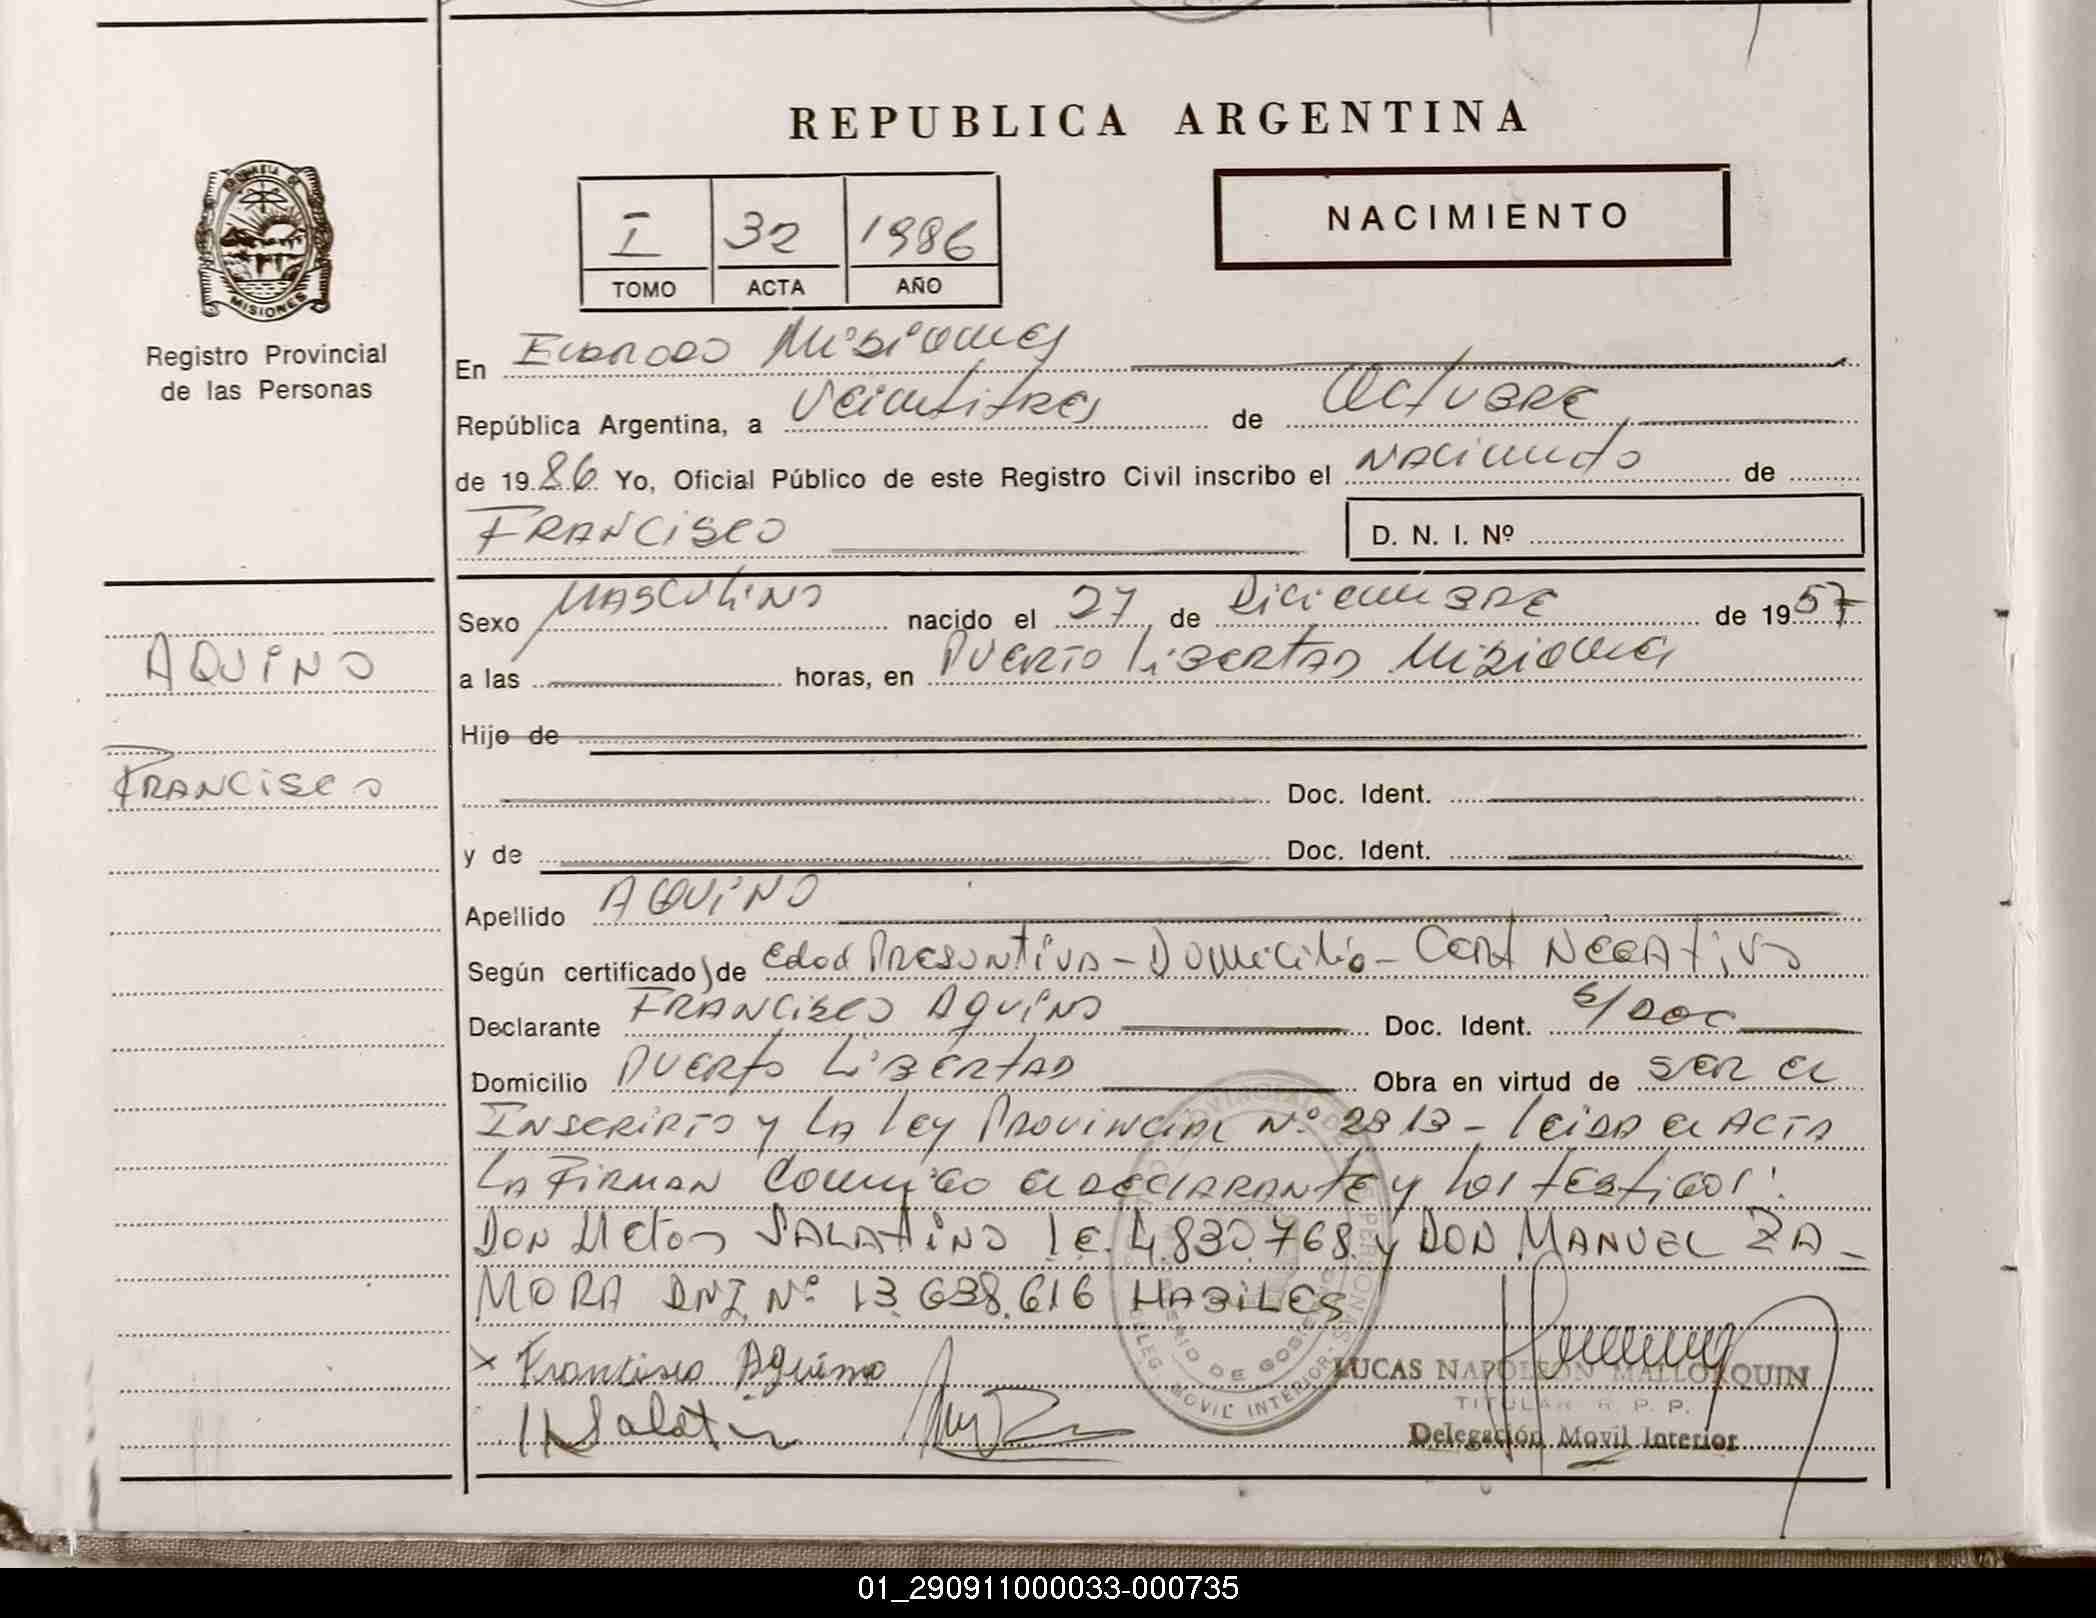 REPUBLICA ARGENTINA
NACIMIENTO
I 32 1986
TOMO ACTA AÑO
MISIONES
Registro Provincial
de las Personas
AQUINO
FRANCISCO
En ELDORADO Misiones
República Argentina, a Veintitres de Octubre
de 1986 Yo, Oficial Público de este Registro Civil inscribo el Nacimiento de
FRANCISCO
D. N. I. Nº
Sexo MASCULINO nacido el 27 de Diciembre de 1957
a las horas, en PUERTO LIBERTAD Misiones
Hijo de
Doc. Ident.
y de Doc. Ident.
Apellido AQUINO
Según certificado de Edad PRESUNTIVA - Domicilio - CERT NEGATIVO
Declarante FRANCISCO AQUINO Doc. Ident. S/DOC
Domicilio PUERTO LIBERTAD Obra en virtud de SER EL
INSCRIPTO Y LA LEY PROVINCIAL Nº 2313 - LEIDA EL ACTA
LA FIRMAN Conmigo el DECLARANTE y los testigos:
DON SALATINO L.E. 4.830.768 y DON MANUEL ZA-
MORA DNI Nº 13.638.616 HABILES
x Francisco Aquino
LUCAS NAPOLEON MALLORQUIN
TITULAR R. P. P.
Delegación Movil Interior
01_290911000033-000735